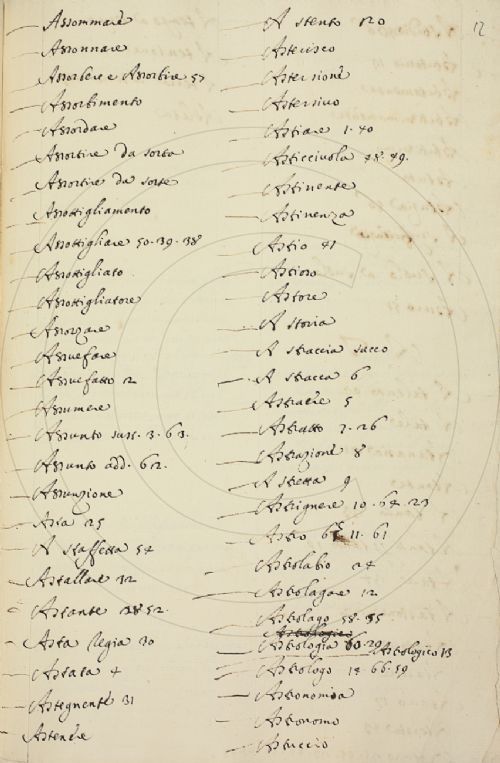 12
Assommare
Assonnare
Assorbere e Assorbire 57
Assorbimento
Assordare
Assortire da sorta
Assortire da sorte
Assottigliamento
Assottigliare 50. 39. 38
Assottigliato
Assottigliatore
Assuefare
Assuefatto 2
Assumere
Assunto sust. 3. 63.
Assunto add. 62.
Assunzione
Asta 25
A staffetta 54
Astallare 32
Astante 38 52.
Asta regia 30
Astata 4
Astegnente 31
Astenere
A stento 120
Asterisco
Astersione
Astersivo
Astiare 1. 40
Asticciuola 48. 49.
Astinente
Astinenza
Astio 41
Astioso
Astore
A storia
A straccia sacco
A stracca 6
Astrarre 5
Astratto 7. 26
Astrazione 8
A stretta 9
Astrignere 10. 64. 23
Astro 65 11. 61
Astrolabio 24
Astrolagare 12
Astrolago 58. 35
Astrologia 60. 29 Astrologico 13
Astrologo 18 66. 59
Astronomia
Astronomo
Astuccio